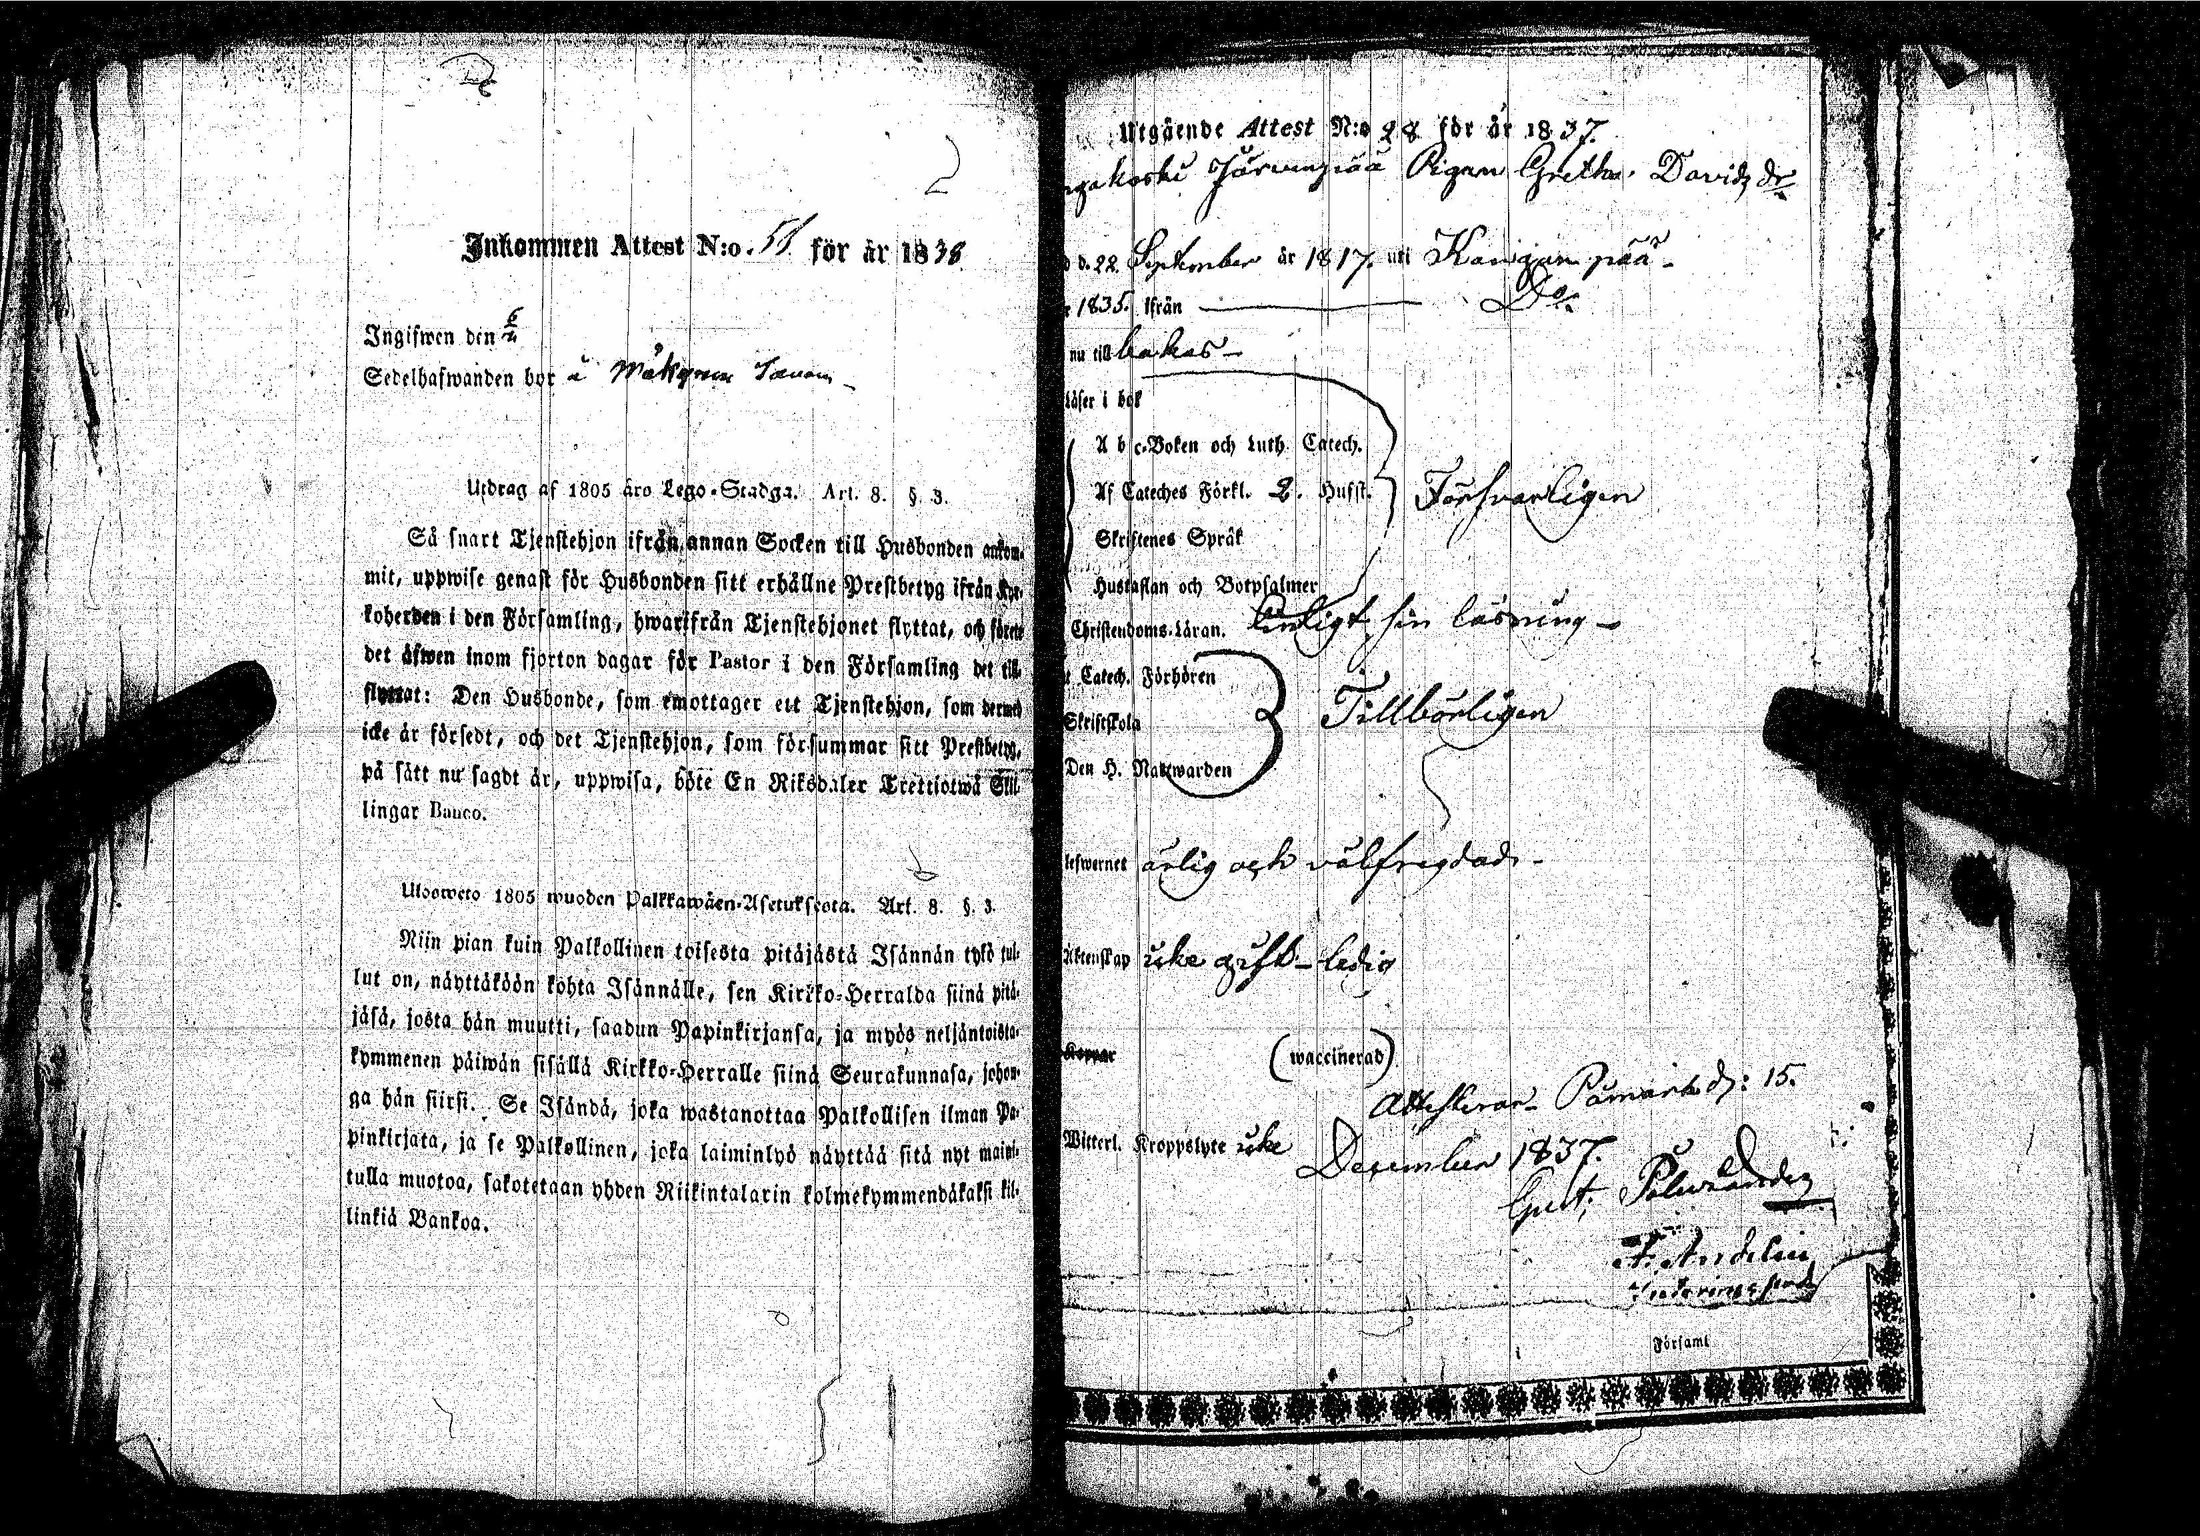 Inkommen Attest N:o. 51. för år 1838
Ingifwen den 6/2
Sedelhafwanden bor å
Utdrag af 1805 års Lego-Stadga. Art. 8. §. 3.
Så snart Tjenstehjon ifrån annan Socken till Husbonden ankom-
mit, uppwise genast för Husbonden sitt erhållne Prestbetyg ifrån Kyr-
koherden i den Församling, hwarifrån Tjenstehjonet flyttat, och förete
det äfwen inom fjorton dagar för Pastor i den Församling det till-
flyttat: Den Husbonde, som emottager ett Tjenstehjon, som dermed
icke är försedt, och det Tjenstehjon, som försummar sitt Prestbetyg,
på sätt nu sagdt är, uppwisa, böte En Riksdaler Trettiotwå Skil-
lingar Banco.
Ulosweto 1805 wuoden Palkkawäen-Asetuksesta. Art. 8. §. 3.
Niin pian kuin Palkollinen toisesta pitäjästä Isännän tykö tul-
lut on, näyttäköön kohta Isännälle, sen Kirkko-Herralda siinä pitä-
jäsä, josta hän muutti, saadun Papinkirjansa, ja myös neljäntoista-
kymmenen päiwän sisällä Kirkko-Herralle siinä Seurakunnasa, johon-
ga hän siirsi. Se Isändä, joka wastanottaa Palkollisen ilman Pa-
pinkirjata, ja se Palkollinen, joka laiminlyö näyttää sitä nyt maini-
tulla muotoa, sakotetaan yhden Riikintalarin kolmekymmendäkaksi kil-
linkiä Bankoa.
Utgående Attest N:o 28 för år 1837.
Järvenpää Pigan Gretha Davidsdr
d. 22 September år 1817. uti Kangan pää
1835. ifrån Do
nu till bakas
läser i bok
A b c-Boken och Luth. Catech.
Af Cateches Förkl. 2. Hufst. Försvarligen
Skriftenes Språk
Hustaflan och Botpsalmer
Christendoms-Läran. Enligt sin läsning
Catech. Förhören
Skriftskola Tillbörligen
Den H. Nattwarden
lefwernet ärlig och välfregdad
Äktenskap icke gift - ledig
Koppor (waccinerad)
Attesterar Påmark d: 15.
Witterl. Kroppslyte icke December 1837.
Gust. Polviander
F. Andelin
Församl